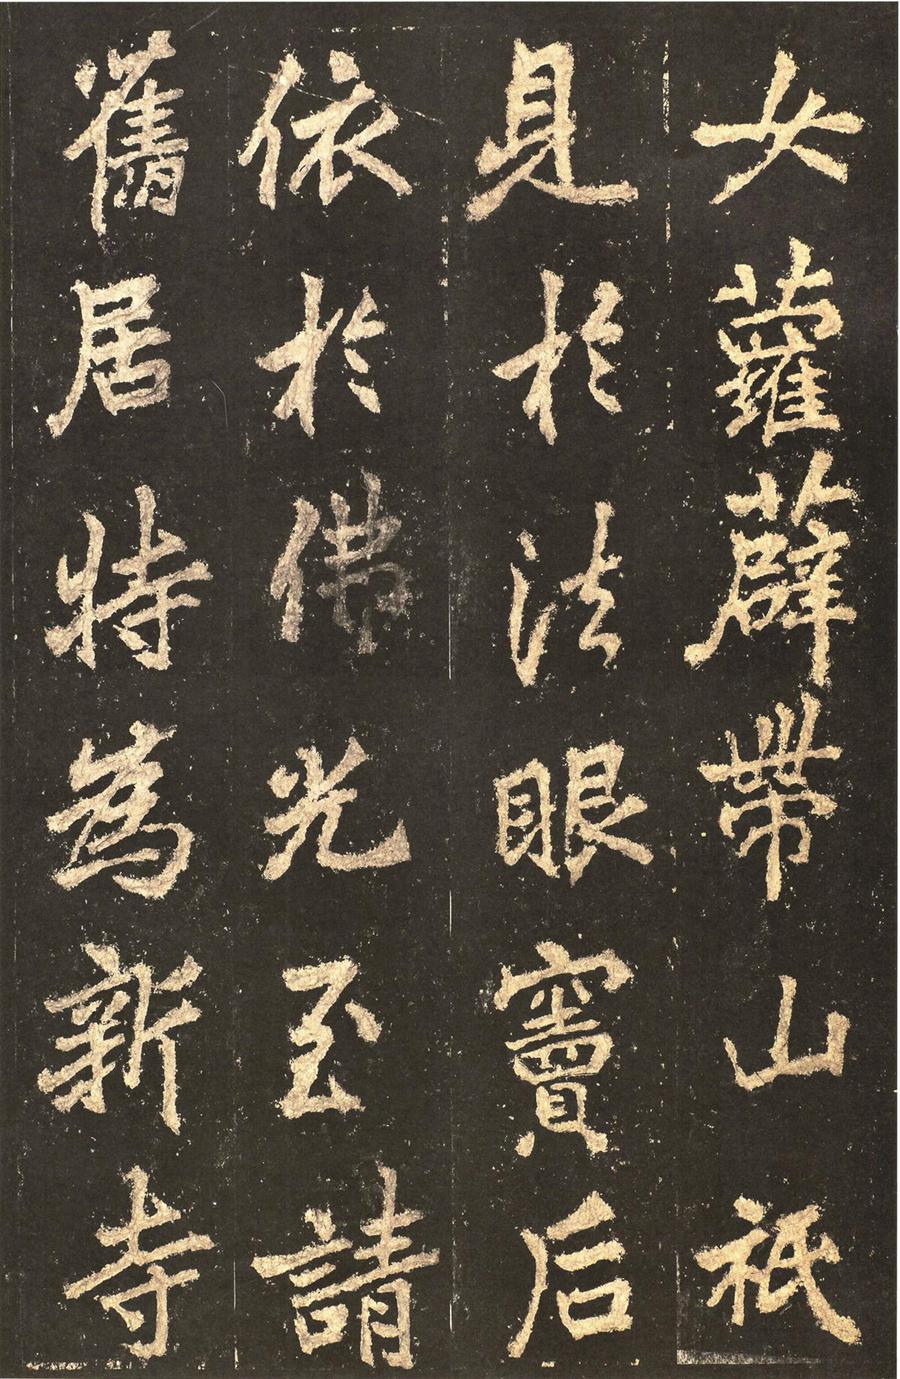 女蘿薜帶山祇
見於法眼竇后
依於佛光至請
舊居特為新寺